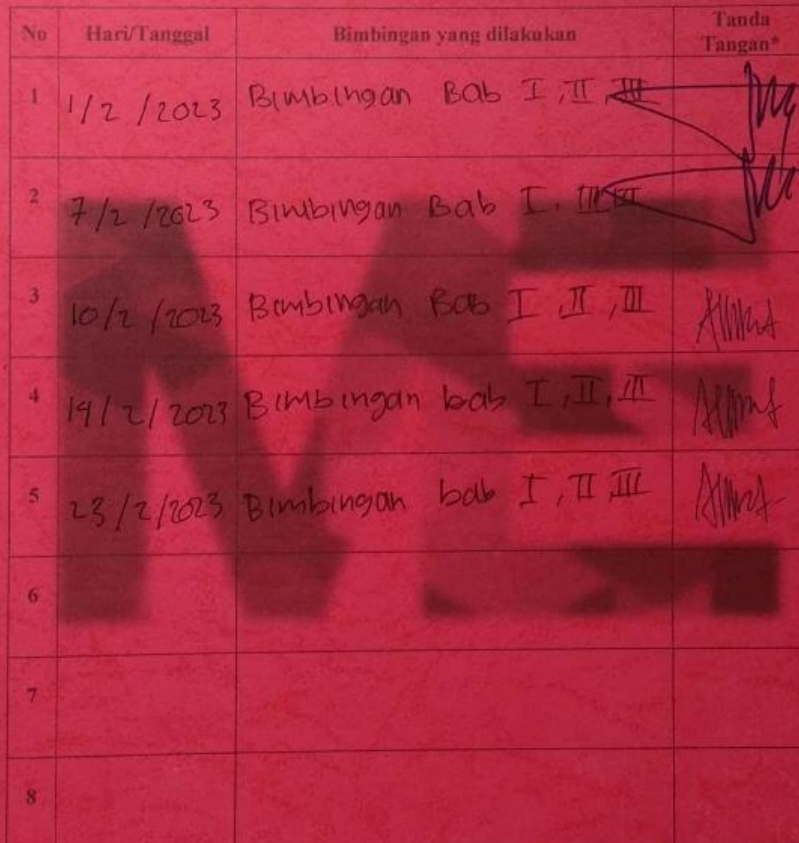 No Hari/Tanggal Bimbingan yang dilakukan Tanda Tangan*
1 1/2/2023 Bimbingan Bab I, II, III
2 7/2/2023 Bimbingan Bab I,
3 10/2/2023 Bimbingan Bab I, II, III
4 14/2/2023 Bimbingan bab I, II, III
5 23/2/2023 Bimbingan bab I, II III
6
7
8